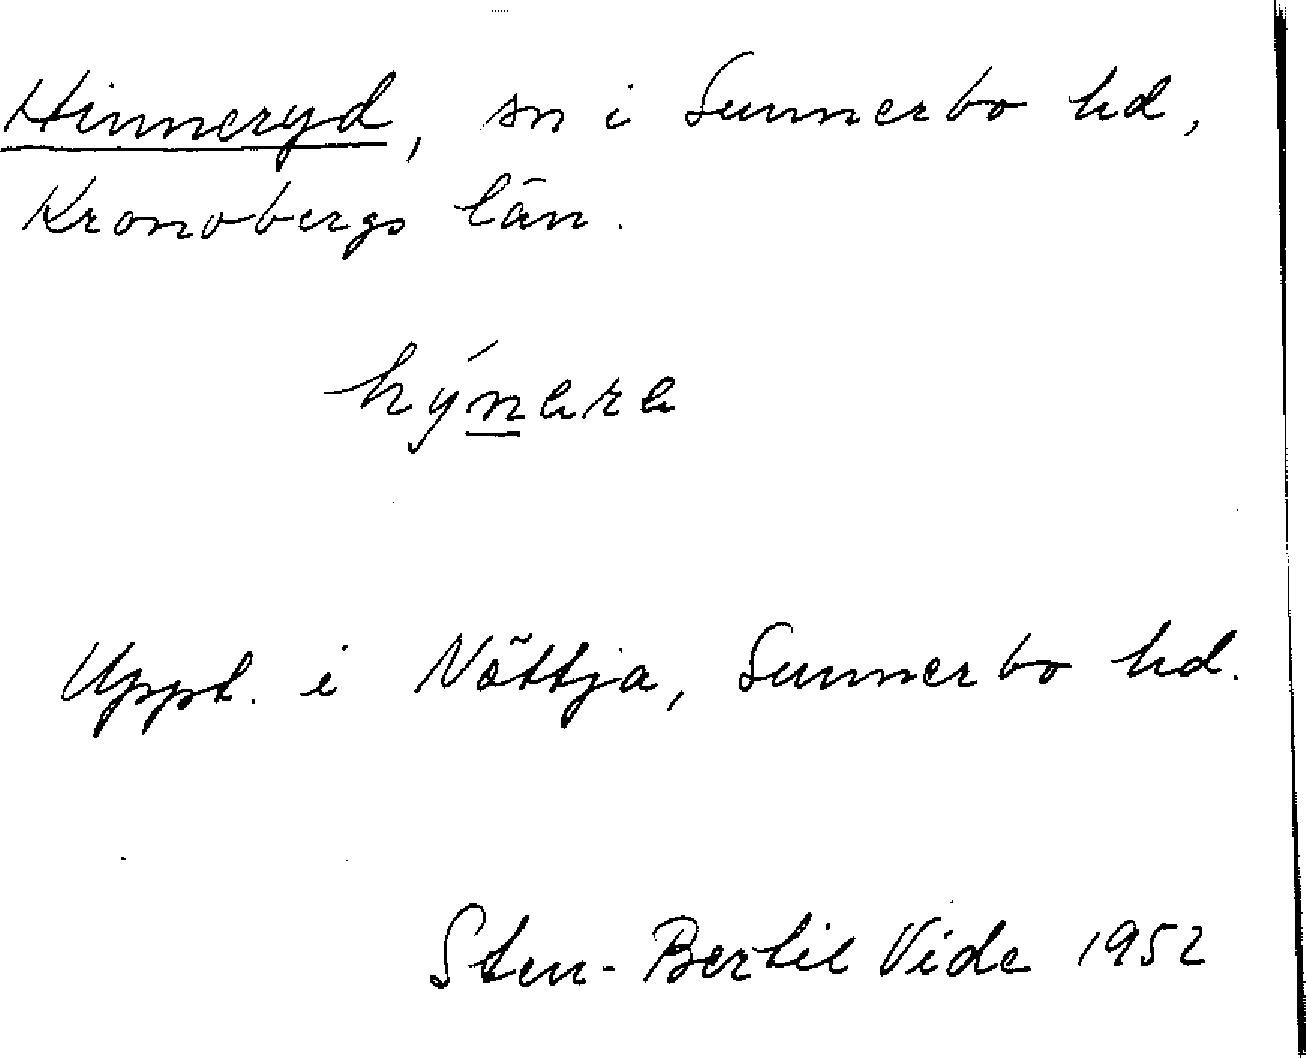 Hinneryd, sn i Sunnerbo hd,
Kronobergs län.
hýnara
Uppt. i Nöttja, Sunnerbo hd.
Sten-Bertil Vide 1952